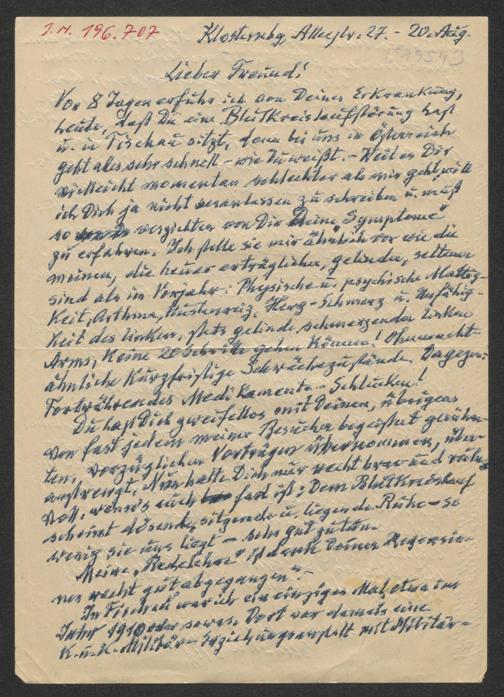 I.N. 196.707
Klosternbg, Alleestr. 27. - 20. Aug.
[1954]
Lieber Freund!
Vor 8 Tagen erfuhr ich von Deiner Erkrankung,
heute, daß Du eine Blutkreislaufstörung hast
u. in Fischau sitzt, denn bei uns in Österreich
geht alles sehr schnell - wie Du weißt. - Weil es Dir
vielleicht momentan schlechter als mir geht, will
ich Dich ja nicht veranlassen zu schreiben u. muß
so verzichten von Dir Deine "Symptome"
zu erfahren. Ich stelle sie mir ähnlich vor wie die
meinen, die heuer erträglicher, gelinder, seltener
sind als im Vorjahr: Physische u. psychische Mattig-
keit, Asthma, Hustenreiz, Herz-Schmerz u. Unfähig-
keit des linken, stets gelinde schmerzenden linken
Arms, keine 20 Schritte gehen können! Ohnmacht-
ähnliche kurzfristige Schwächezustände. Dagegen:
Fortwährendes Medikamente-Schlucken!
Du hast Dich zweifellos mit Deinen, übrigens
von fast jedem meiner Besucher begeistert gerühm-
ten, vorzüglichen Vorträgen übernommen, über-
anstrengt. Nun halte Dich nur recht brav und ruhig
voll. wenn's auch fad ist: Dem Blutkreislauf
scheint dösende, sitzende u. liegende Ruhe - so
wenig sie uns liegt - sehr gut zu tun.
Meine ist dank Deiner
recht gut abgegangen". -
In Fischau war ich ein einziges Mal, etwa im
Jahr 1910 oder sowas. Dort war damals eine
K.u.K.-Militär-Erziehungsanstalt mit Militär-